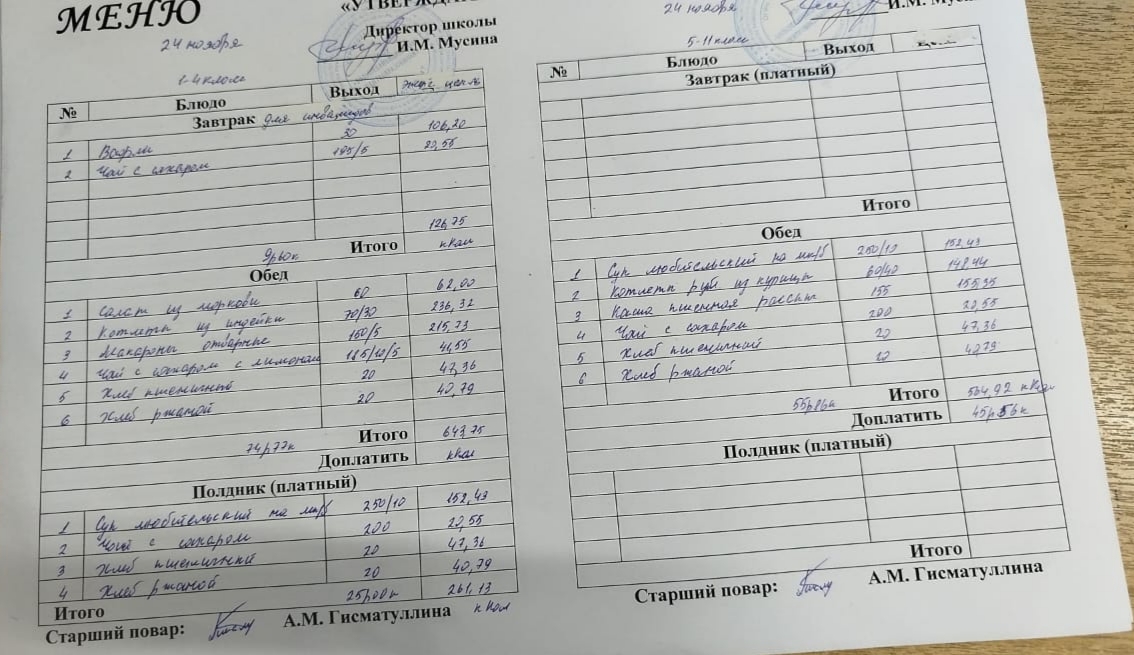 МЕНЮ
«УТВЕРЖДА
Директор школы
И.М. Мусина
24 ноября
1-4 класс
№ Блюдо Выход Энерг. цен-ть
Завтрак для инвалидов
1 Вафли 30 106,20
2 Чай с сахаром 195/5 20,55
126,75
9р60к Итого кКал
Обед
1 Салат из моркови 60 62,00
2 Котлеты из индейки 70/30 236,32
3 Макароны отварные 150/5 215,73
4 Чай с сахаром с лимоном 185/10/5 41,55
5 Хлеб пшеничный 20 47,36
6 Хлеб ржаной 20 40,79
74р77к Итого 643,75
Доплатить кКал
Полдник (платный)
1 Суп любительский на 250/10 152,43
2 Чай с сахаром 200 20,55
3 Хлеб пшеничный 20 47,36
4 Хлеб ржаной 20 40,79
Итого 25р00к 261,13
Старший повар: А.М. Гисматуллина кКал
24 ноября
И.М. Мусина
5-11 класс
№ Блюдо Выход
Завтрак (платный)
Итого
Обед
1 Суп любительский на 250/10 152,43
2 Котлеты руб из курицы 60/40 148,44
3 Каша пшенная рассып 155 155,35
4 Чай с сахаром 200 20,55
5 Хлеб пшеничный 20 47,36
6 Хлеб ржаной 20 40,79
55р86к Итого 564,92 кКал
Доплатить 45р56к
Полдник (платный)
Итого
Старший повар: А.М. Гисматуллина